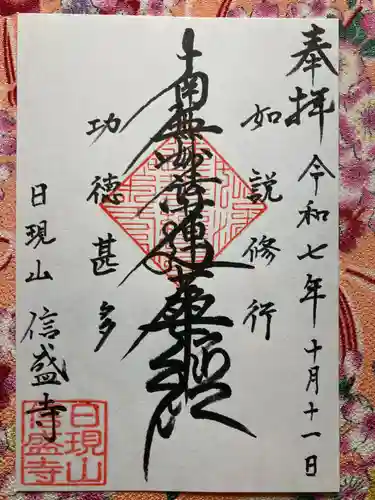 奉拝
令和七年十月十一日
如説修行
南無妙法蓮華経
功徳甚多
日現山
信盛寺
日現山
信盛寺